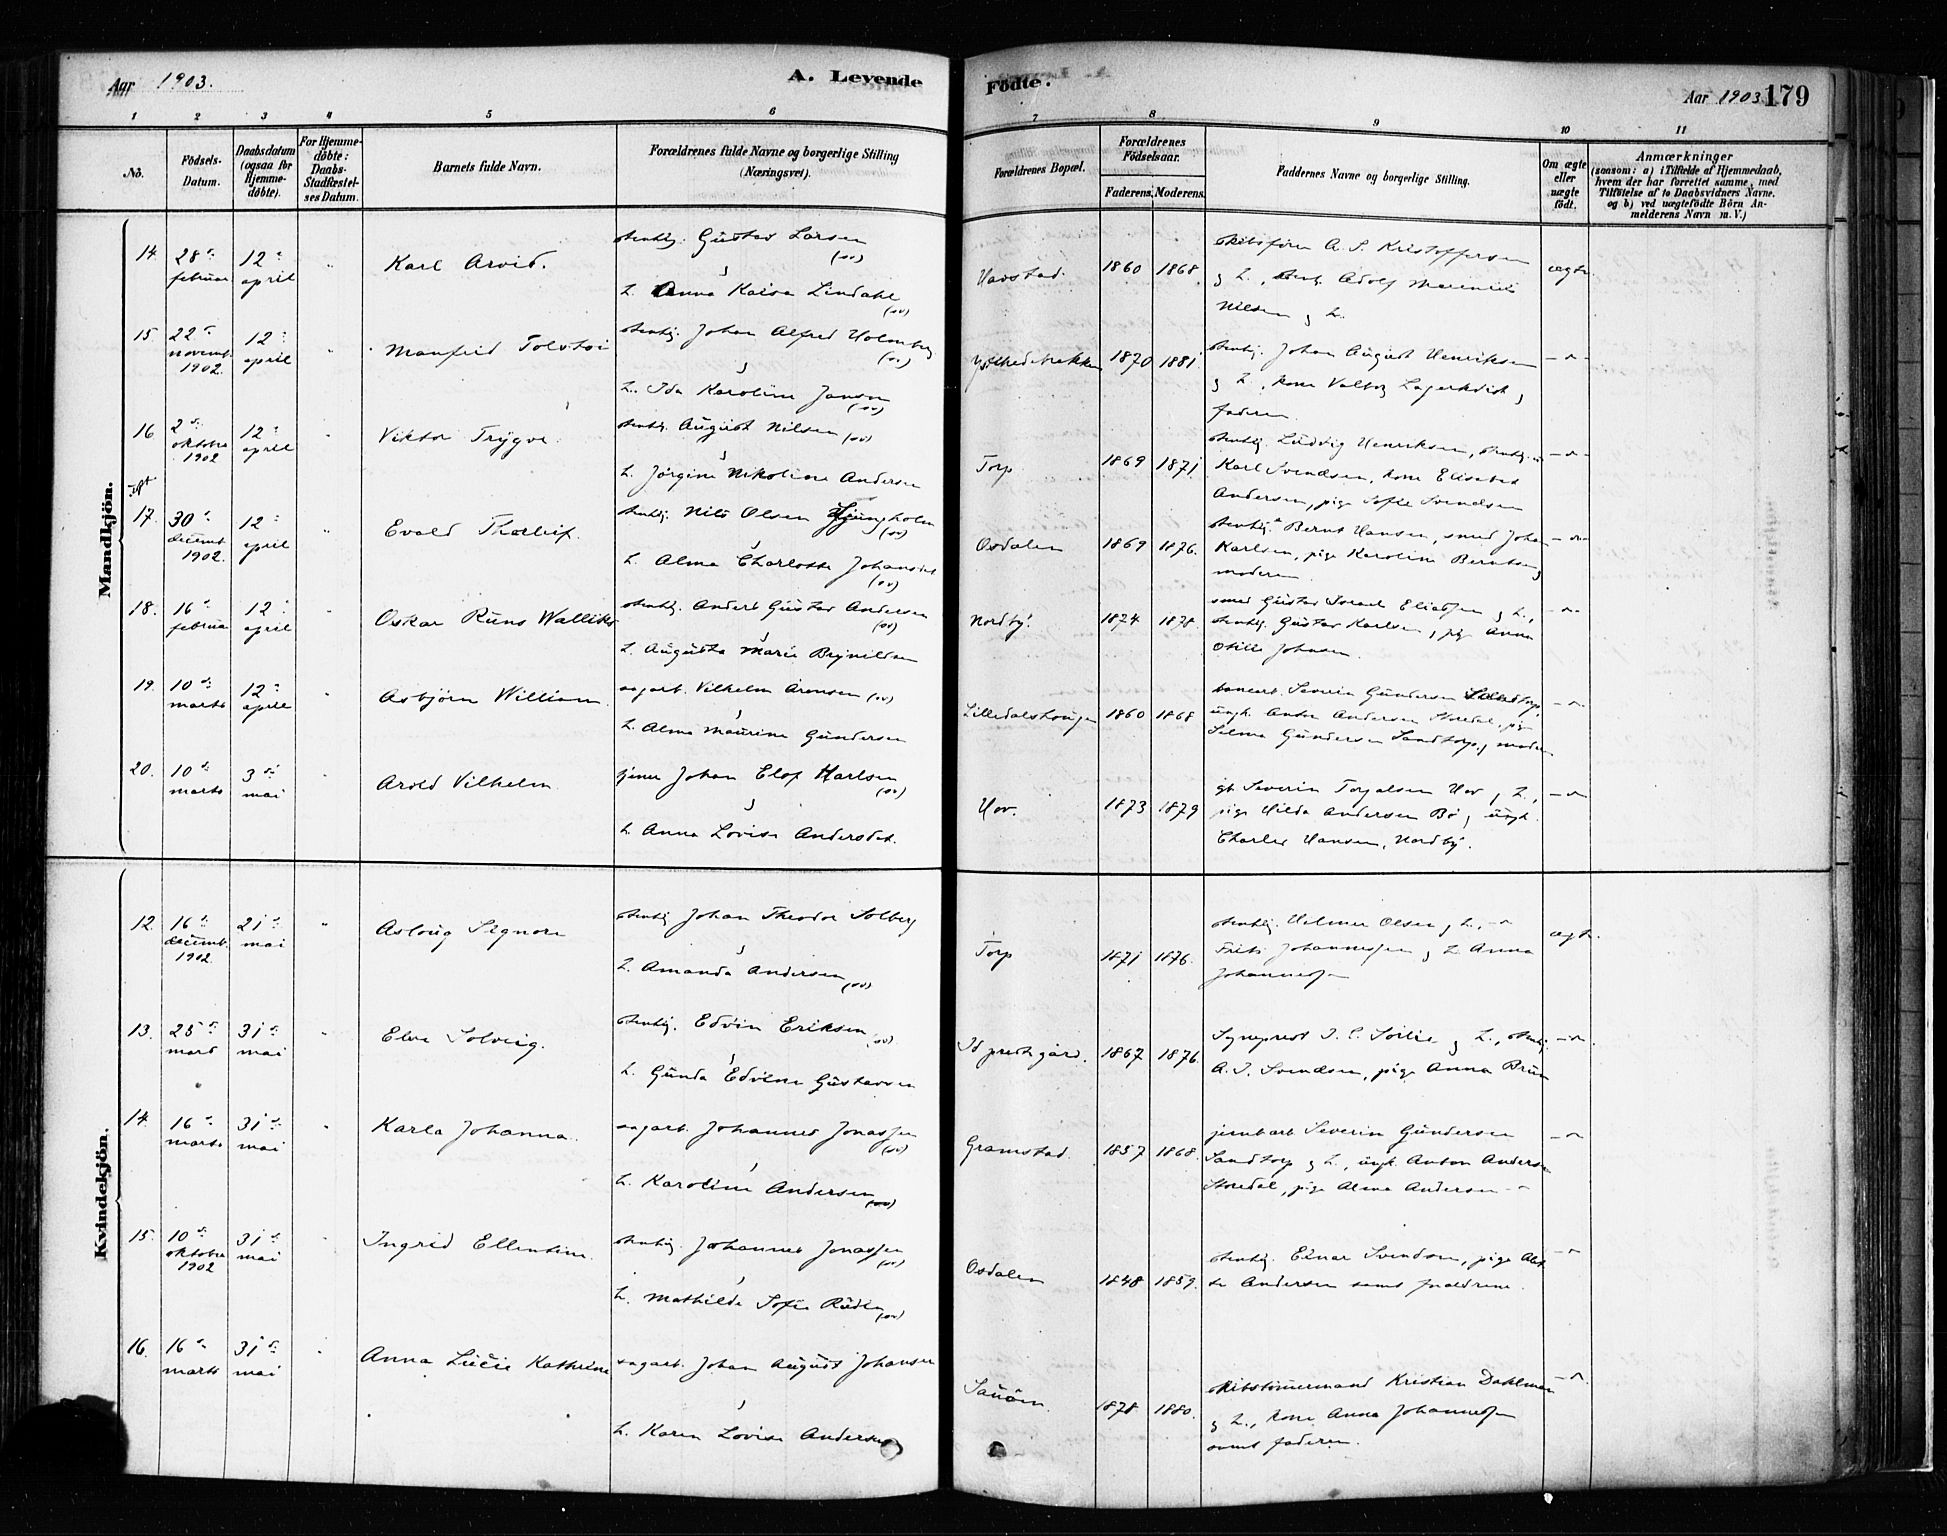 Aar 1903.
A. Levende
Födte.
Aar 1903
179
1 2 3 4 5 6
7 8 9 10 11
No.
Födsels-
Datum.
Daabsdatum
(ogsaa for
Hjemme-
döbte).
For Hjemme-
döbte:
Daabs-
Stadfæstel-
ses Datum.
Barnets fulde Navn.
Forældrenes fulde Navne og borgerlige Stilling
(Næringsvei).
Forældrenes Bopæl.
Forældrenes
Födselsaar.
Faderens. Moderens.
Faddernes Navne og borgerlige Stilling.
Om ægte
eller
uægte
födt.
Anmærkninger
(saasom: a) i Tilfælde af Hjemmedaab,
hvem der har forrettet samme, med
Tilföielse af to Daabsvidners Navne.
og b) ved uægtefödte Börn An-
melderens Navn m. V.)
Mandkjön.
14. 28 februar 12 april Karl Arvid.
stenhg. Gustav Larsen
h. Anna Kaisa Lindahl
Havstad. 1860 1868
A. S. Kristoffersen
g h., stenhg. Adolf
Nilsen g h.
ægte
15. 22 novemb. 1902. 12 april Manfrid Tolstoi
stenhg. Johan Alfred Holmberg
h. Ida Karoline Janson
1870 1881
stenhg. Johan August Henriksen
g h., kone Valborg Lagerkvist g
faderen
16 2 oktober 1902 12 april Viktor Trygve
stenhg. August Nilsen
h. Jörgine Nikoline Andersen
Torp 1869 1871
stenhg. Ludvig Henriksen, stenhg.
Karl Svendsen, kone Elisabet
Andersen, pige Sofie Svendsen
17. 30 decemb. 1902. 12 april Evald Thorleif.
stenhg. Nils Olsen Ljungholm
h. Alma Charlotte Johansdat
Osdalen 1869 1876.
stenhg. Bernt Hansen, smed Johan
Karlsen, pige Karoline Berntsen g
moderen
18. 16 februar 12 april Oskar Runo
stenhg. Anders Gustav Andersen
h. Augusta Marie Brynildsen
Nordby. 1874 1878.
smed Gustav Israel Eliassen g h.,
stenhg. Gustav Karlsen g pige Anna
Otilie Johnsen.
19. 10 marts 12 april Asbjörn William
sagarb. Vilhelm Arensen
h. Alma Maurine Gundersen
1860 1868
Severin Gundersen
ungk. Anton Andersen Storedal, pige
Selma Gundersen Sandtorp g moder
20. 10 marts 3 mai Arold Vilhelm
tjener Johan Elof Karlsen
h. Anna Lovise Andersdat.
Hov. 1873 1879
gb. Severin Torgalsen Hov g h.,
pige Hilda Andersen Bö g ungk.
Charles Hansen, Nordby.
Kvindekjön.
12. 16 decemb. 1902. 21 mai Aslaug Signora
stenhg. Johan Theodor Solberg
h. Amanda Andersen
Torp 1871 1876.
stenhg. Hilmer Olsen g h.,
Frits Johannessen g h. Anna
Johannessen
ægte.
13. 25 mars 31 mai Elva Solveig.
stenhg. Edvin Eriksen
h. Gunda Edvine Gustavsen
Id prestgård. 1867 1876.
Sogneprest g h., stenhg.
A. J. Svendsen, pige Anna Brun
14. 16 marts 31 mai Karla Johanna.
sagarb. Johannes Jonassen
h. Karoline Andersen
Gramstad. 1857 1868.
jernb.arb. Severin Gundersen
Sandtorp g h., ungk. Anton Andersen
Storedal, pige Alma Andersen
15. 10 oktober 1902 31 mai Ingrid Ellentine.
stenhg. Johannes Jonassen
h. Mathilde Sofie
Osdalen 1848 1859.
stenhg. Einar Svendsen, pige
Andersen samt foraldrene.
16. 16 marts 31 mai Anna Lucie Kathrine
sagarb. Johan August Johansen
h. Karen Lovise Andersen
1878. 1880.
skibstömermand Kristian Dahlman
g h., kone Anna Johannessen
samt faderen.